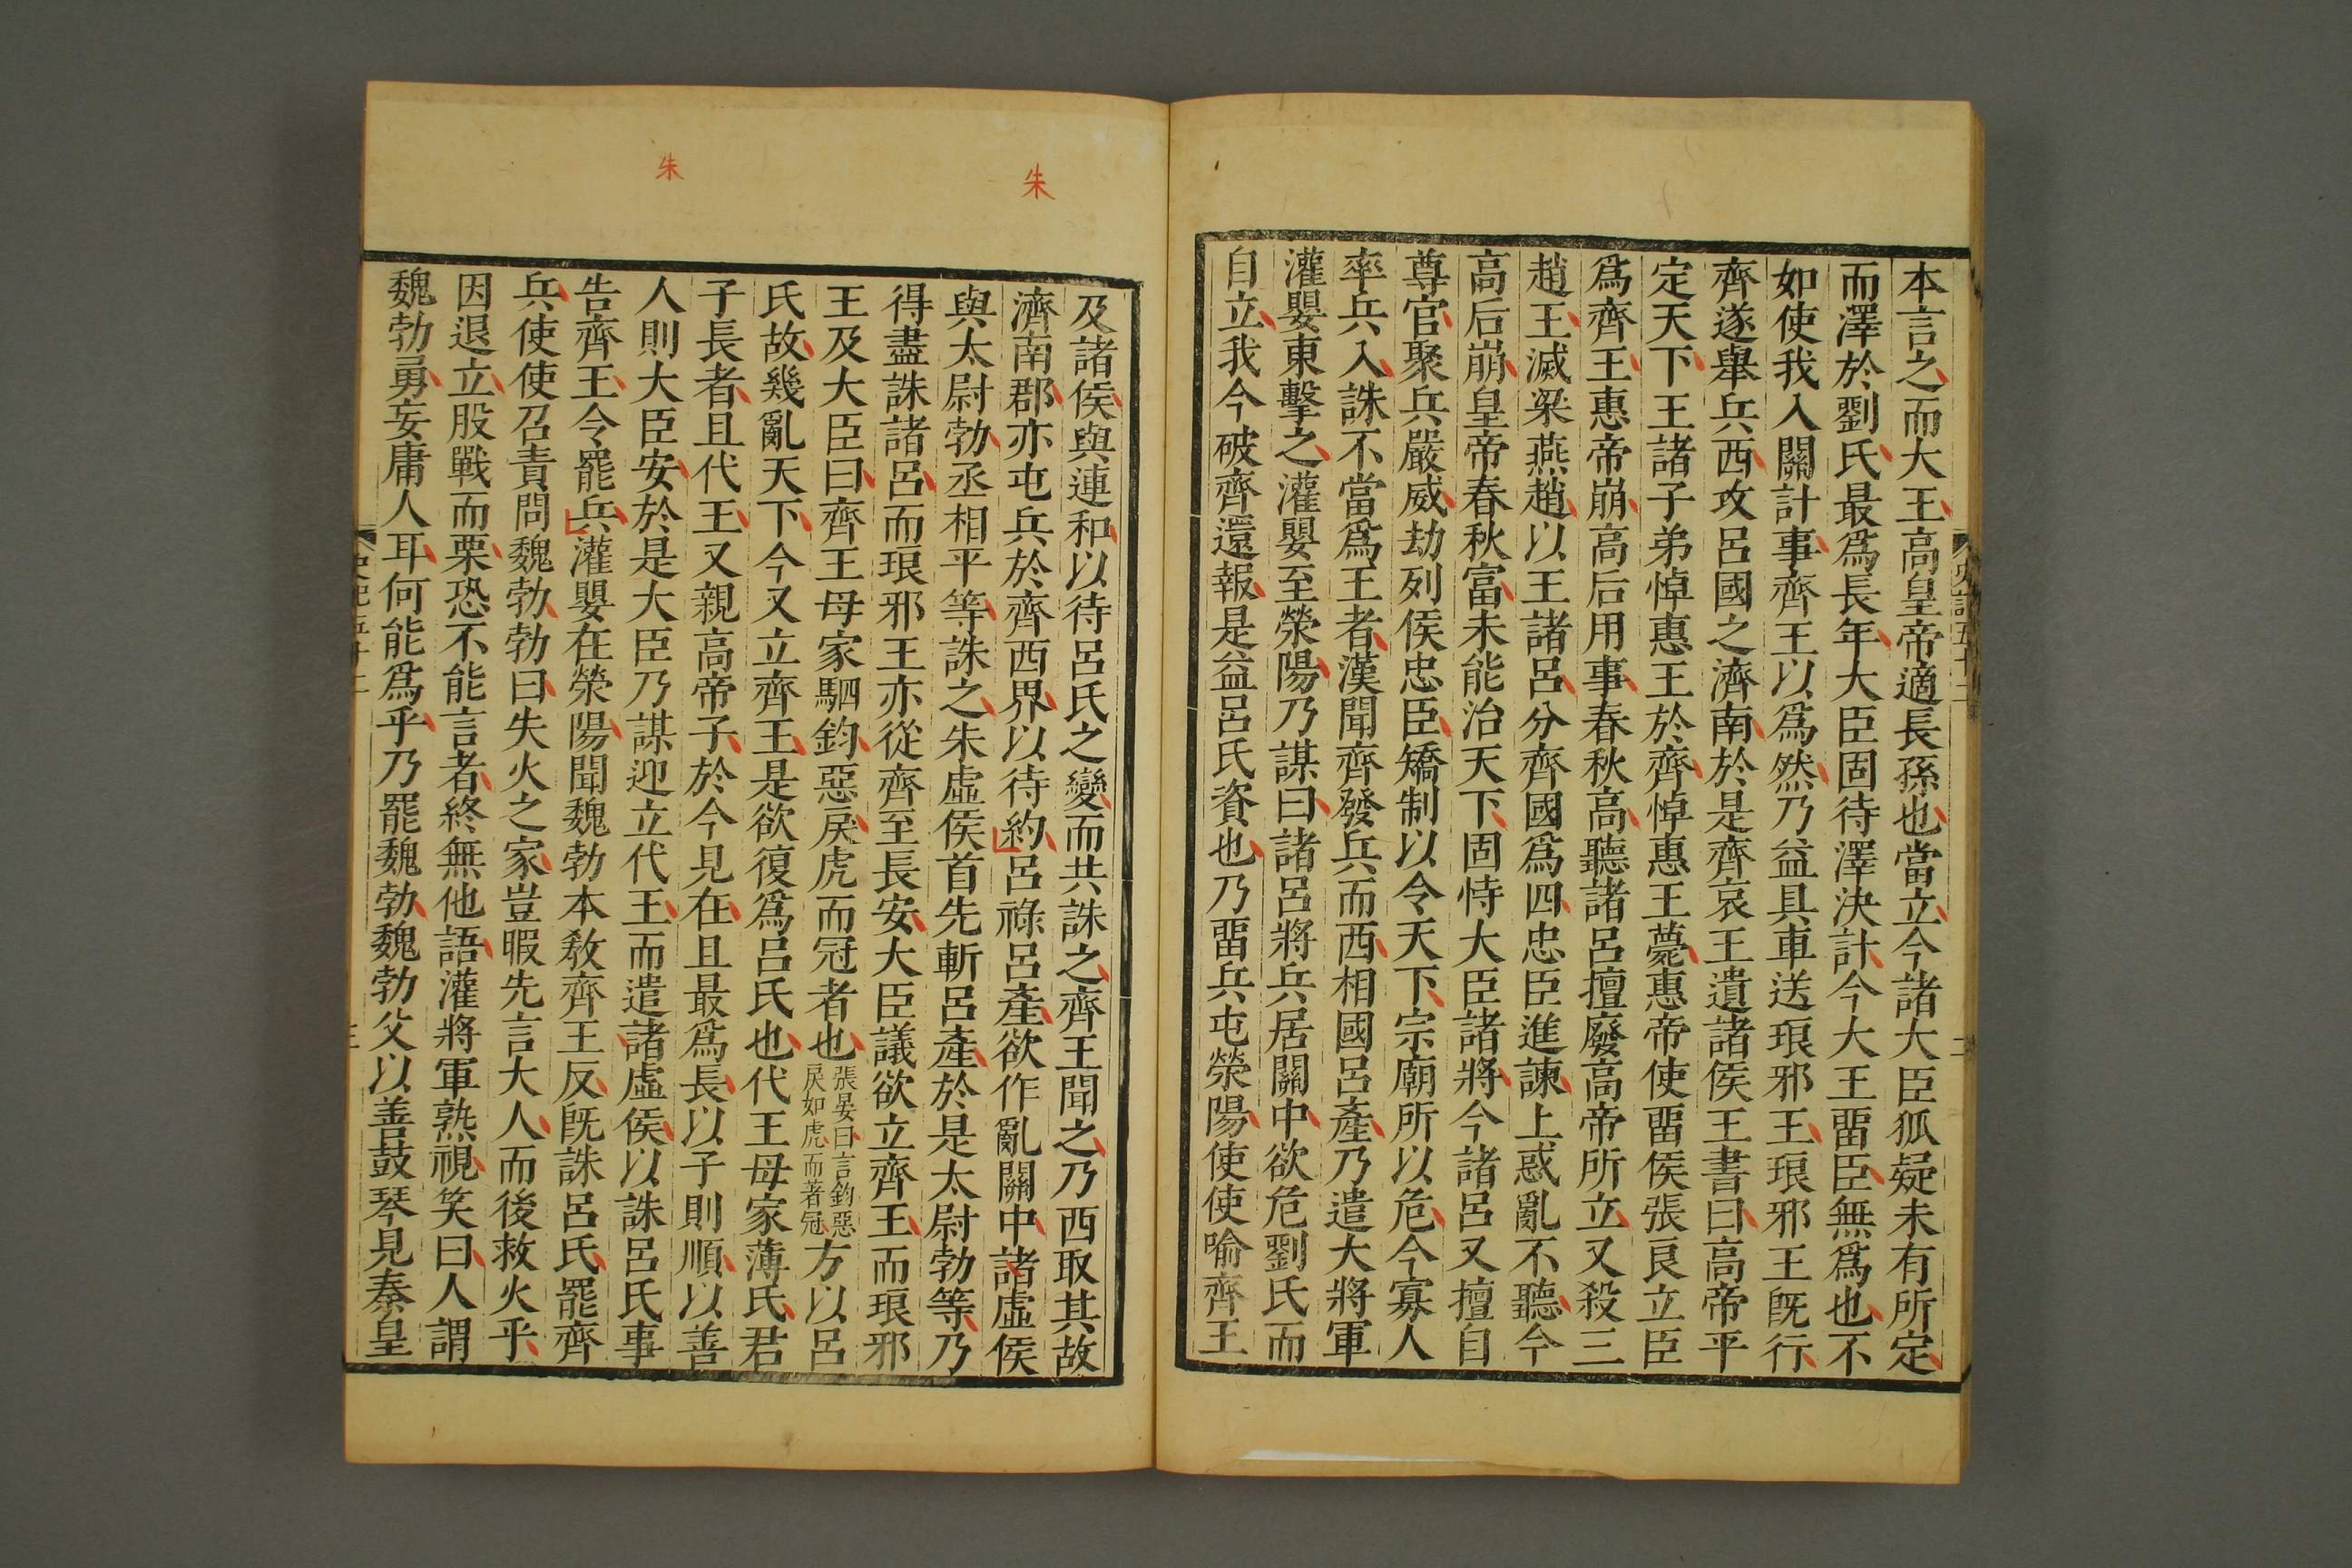 本言之而大王高皇帝適長孫也當立今諸大臣狐疑未有所定
而澤於劉氏最爲長年大臣固待澤決計今大王畱臣無爲也不
如使我入關計事齊王以爲然乃益具車送琅邪王琅邪王旣行
齊遂舉兵西攻呂國之濟南於是齊哀王遺諸侯王書曰高帝平
定天下王諸子弟悼惠王於齊悼惠王薨惠帝使畱侯張良立臣
爲齊王惠帝崩高后用事春秋高聽諸呂擅廢高帝所立又殺三
趙王滅梁燕趙以王諸呂分齊國爲四忠臣進諫上惑亂不聽今
高后崩皇帝春秋富未能治天下固恃大臣諸將今諸呂又擅自
尊官聚兵嚴威劫列侯忠臣矯制以令天下宗廟所以危今寡人
率兵入誅不當爲王者漢聞齊發兵而西相國呂產乃遣大將軍
灌嬰東擊之灌嬰至滎陽乃謀曰諸呂將兵居關中欲危劉氏而
自立我今破齊還報是益呂氏資也乃畱兵屯滎陽使使喻齊王
史記五十二
二
朱
朱
及諸侯與連和以待呂氏之變而共誅之齊王聞之乃西取其故
濟南郡亦屯兵於齊西界以待約呂祿呂產欲作亂關中諸虛侯
與太尉勃丞相平等誅之朱虛侯首先斬呂產於是太尉勃等乃
得盡誅諸呂而琅邪王亦從齊至長安大臣議欲立齊王而琅邪
王及大臣曰齊王母家駟鈞惡戾虎而冠者也張晏曰言鈞惡戾如虎而著冠方以呂
氏故幾亂天下今又立齊王是欲復爲呂氏也代王母家薄氏君
子長者且代王又親高帝子於今見在且最爲長以子則順以善
人則大臣安於是大臣乃謀迎立代王而遣諸虛侯以誅呂氏事
告齊王令罷兵灌嬰在滎陽聞魏勃本敎齊王反旣誅呂氏罷齊
兵使使召責問魏勃勃曰失火之家豈暇先言大人而後救火乎
因退立股戰而栗恐不能言者終無他語灌將軍熟視笑曰人謂
魏勃勇妄庸人耳何能爲乎乃罷魏勃魏勃父以善鼓琴見秦皇
史記五十二
三